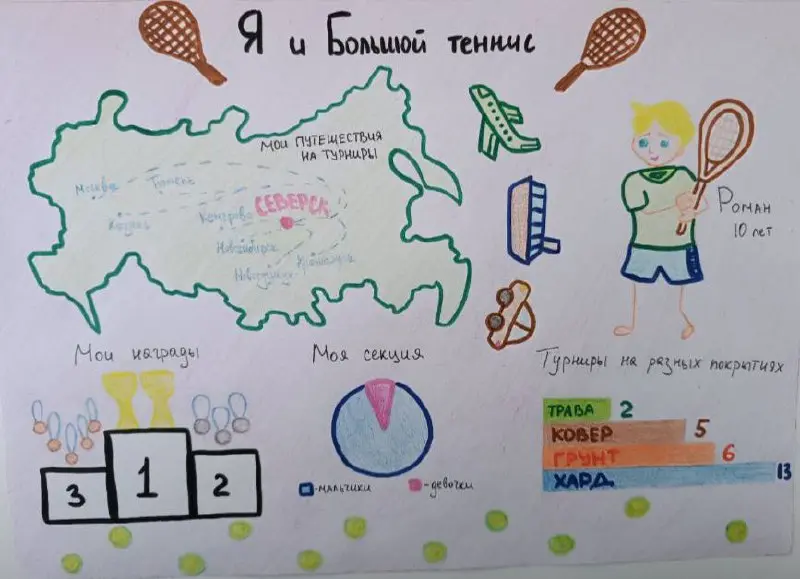 Я и Большой теннис
Мои путешествия
на турниры
Москва
Тюмень
Казань
Кемерово
СЕВЕРСК
Новосибирск
Новокузнецк
Роман
10 лет
Мои награды
3
1
2
Моя секция
-мальчики
-девочки
Турниры на разных покрытиях
ТРАВА 2
КОВЕР 5
ГРУНТ 6
ХАРД 13